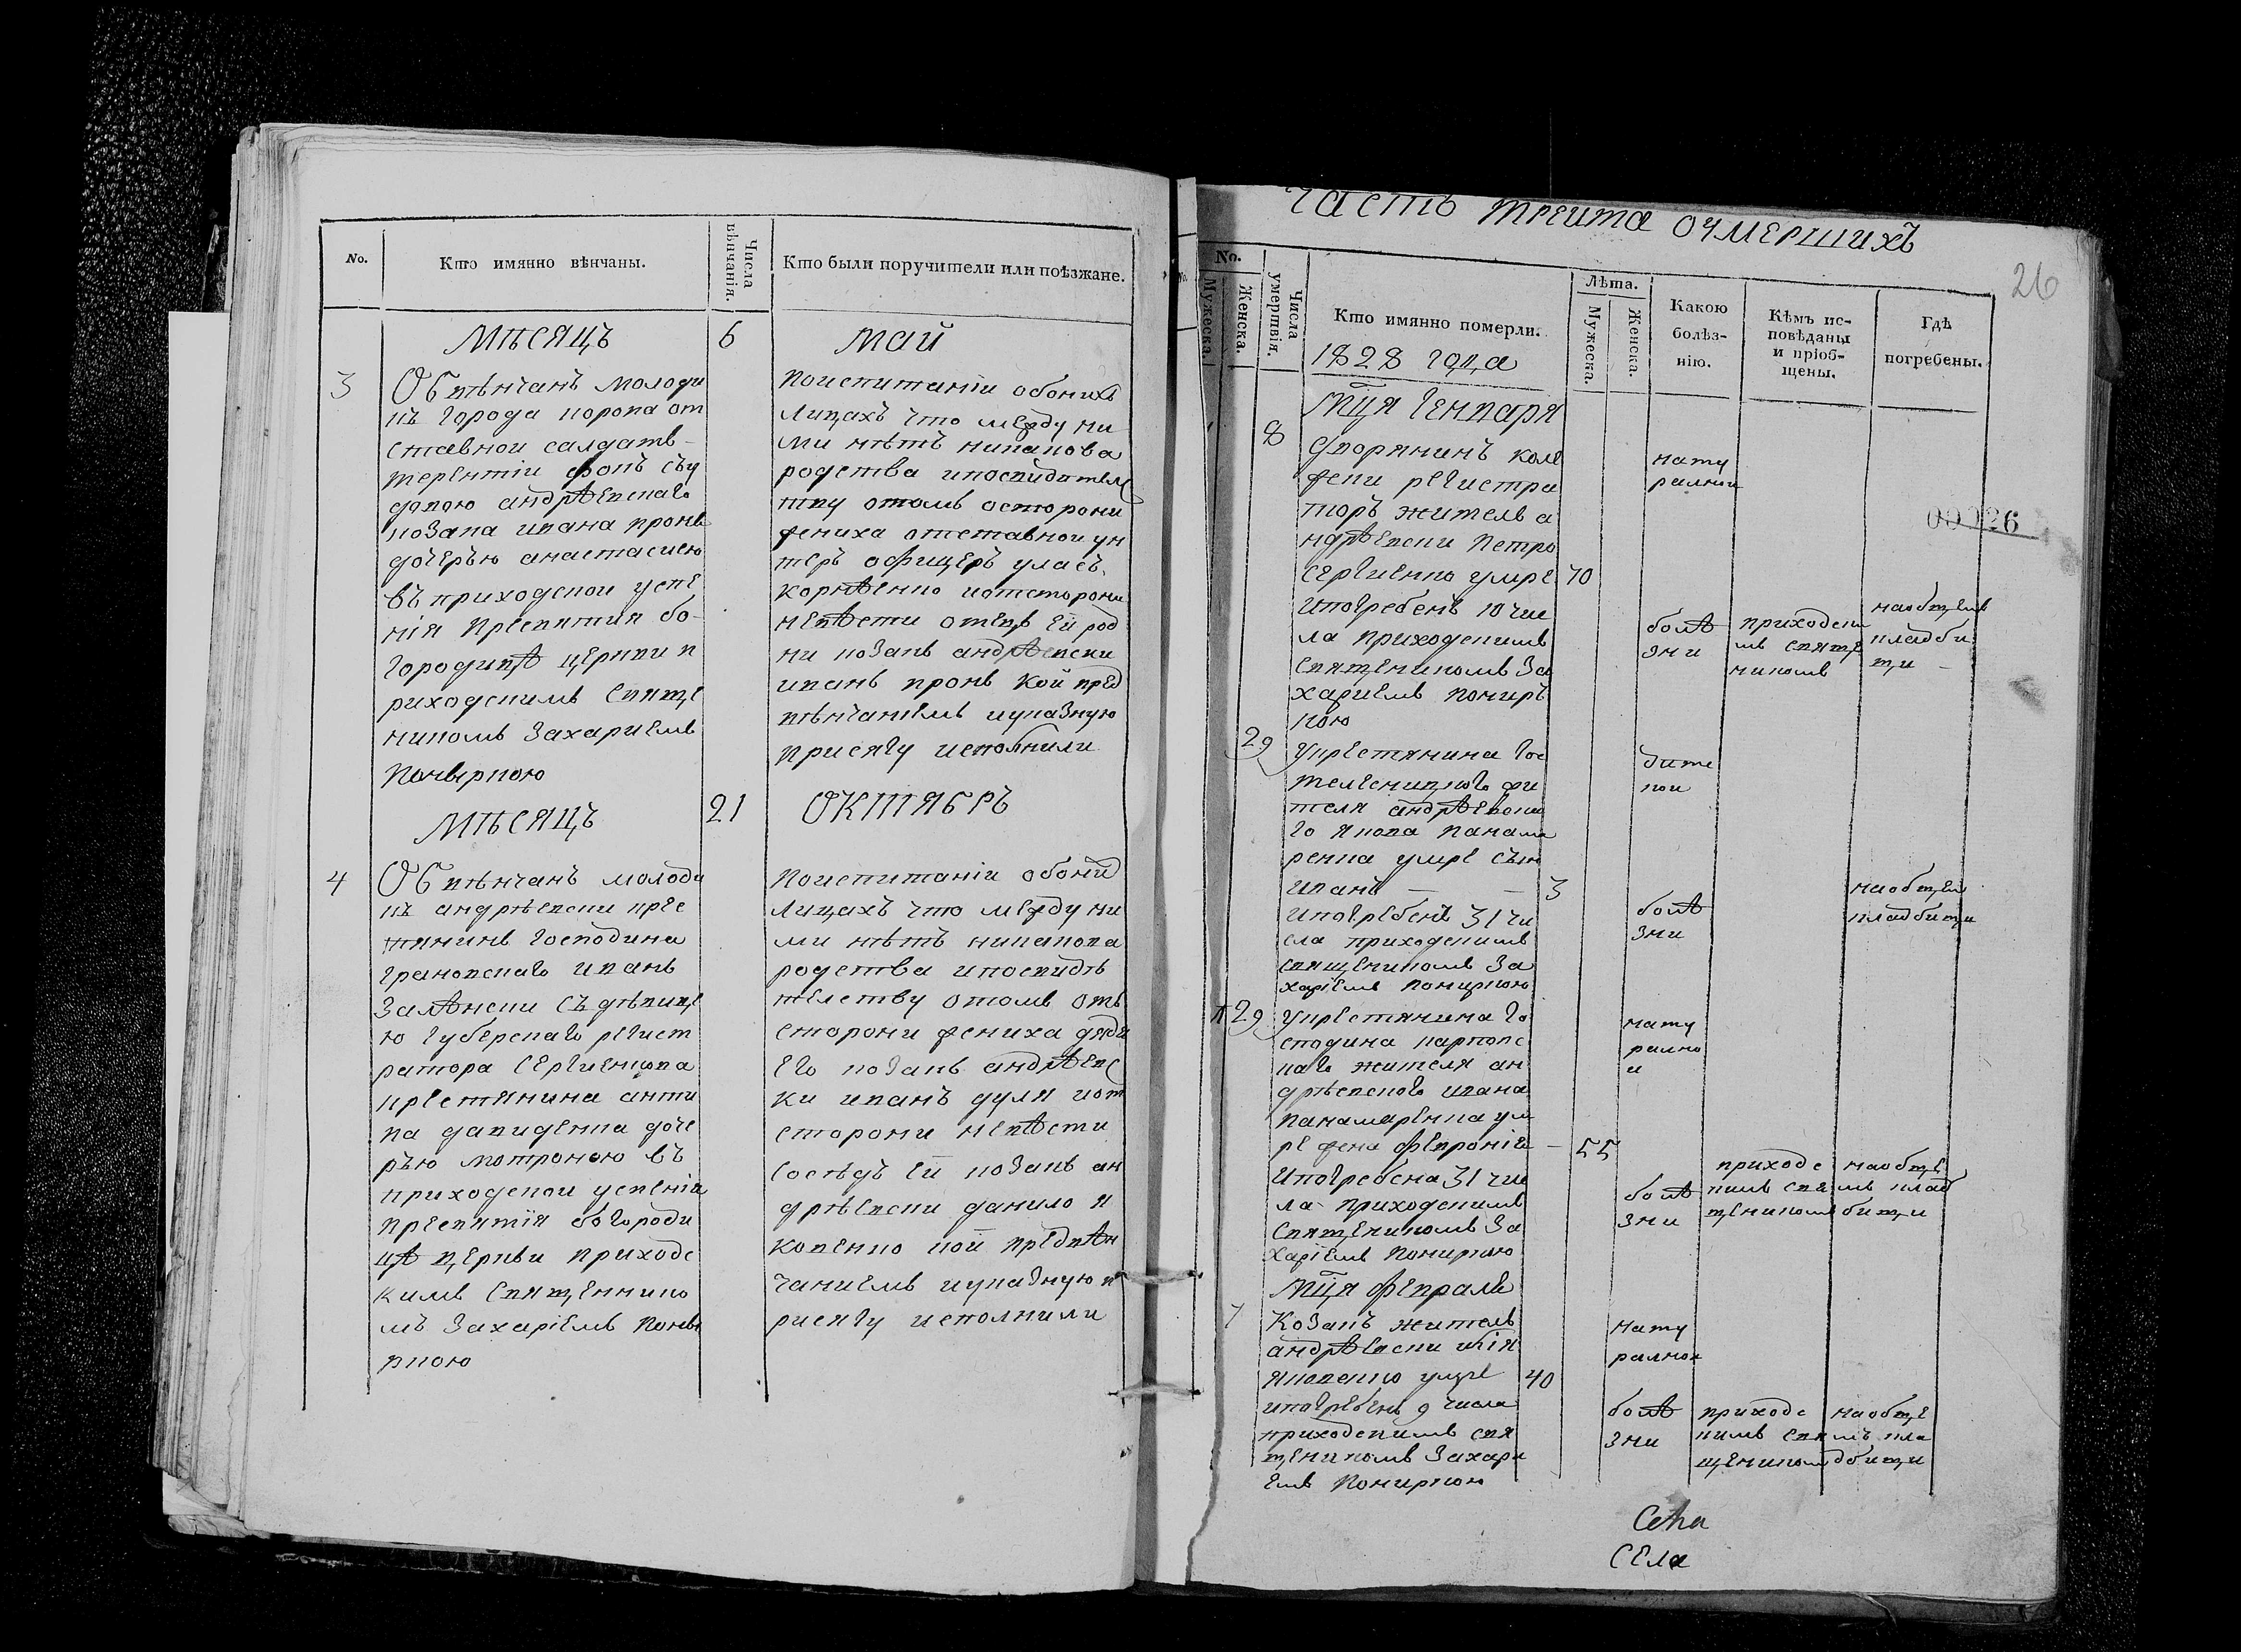 No.
Кто имянно вѣнчаны.
Числа вѣнчанія.
Кто были поручители или поѣзжане.
МѢСЯЦЪ
6
МАЙ
3
Обвѣнчанъ молоди
къ города
ставной салдатъ
терентіи
довою андрѣевскаго
козака ивана
дочерью анастасиею
въ приходскои успе
нія пресвятия бо-
городицѣ церкви п
риходскимъ свяще
никомъ Захариемъ
поисвитаніи обоихъ
лицахъ что между ни
ми нѣтъ никакова
родства
тву отомъ осторони
жениха отставнои ун
теръ офицеръ уласъ
корнѣенко иотсторони
невѣсти отецъ ей род
ни козакъ андрѣевски
иванъ кой пред
вѣнчаниемъ иуказную
присягу исполнили
МѢСЯЦЪ
21
ОКТЯБРЪ
4
Обвѣнчанъ молоди
къ андрѣевски крес
тянинъ господина
грановскаго иванъ
съ дѣвице
ю губерскаго регист
ратора Сергиенкова
крестянина анти
па давиденка доче
рью мотроною въ
приходскои успенія
пресвятія богороди
цѣ церкви приходс
кимъ священнико
мъ Захаріемъ
лицахъ что между ни
ми нѣтъ никакова
родства
телству отомъ отъ
сторони жениха дядя
его козакъ андрѣевс
ки иванъ дуля иот
сторони невѣсти
сосѣдъ ей козакъ ан
дрѣевски данило я
ковенко кой предвѣн
чаниемъ иуказную п
рисягу исполнили
Часть третта оумершихъ
26
No.
Мужеска.
Женска.
Числа умертвія.
Кто имянно померли.
Лѣта.
Мужеска.
Женска.
Какою болѣз-
нію.
Кѣмъ ис-
повѣданы
и пріоб-
щены.
Гдѣ
погребены.
1828 года
мця генваря
8
дворянинъ коле
жски регистра
торъ житель а
ндрѣевски петро
Сергиенко умре
70
ипогребенъ 10 чис
ла приходскимъ
священикомъ За
хариемъ
нату
ралнои
болѣ
зни
приходски
мъ свяще
никомъ
наобщемъ
кладби
щи
00026
29
укрестянина
теля андрѣевска
го якова панама
ренка умре синъ
иванъ
3
ипогребенъ 31 чи
сла приходскимъ
священикомъ За
харіемъ
болѣ
зни
наобщем
кладбищи
29
укрестянина го
сподина
каго жителя ан
дрѣевского ивана
панамаренка ум
ре жена февронія
55
ипогребена 31 чис
ла приходскимъ
священикомъ За
харіемъ
нату
рално
и
болѣ
зни
приходс
кимъ свя
щеникомъ
наобще
мъ клад
бищи
мця февраля
7
Козакъ житель
андрѣевски
яковенко умре
40
ипогребенъ 9 числа
приходскимъ свя
щеникомъ Захари
емъ
нату
ралнои
болѣ
зни
приходс
кимъ свя
щеником
наобще
мъ кла
дбищи
Села